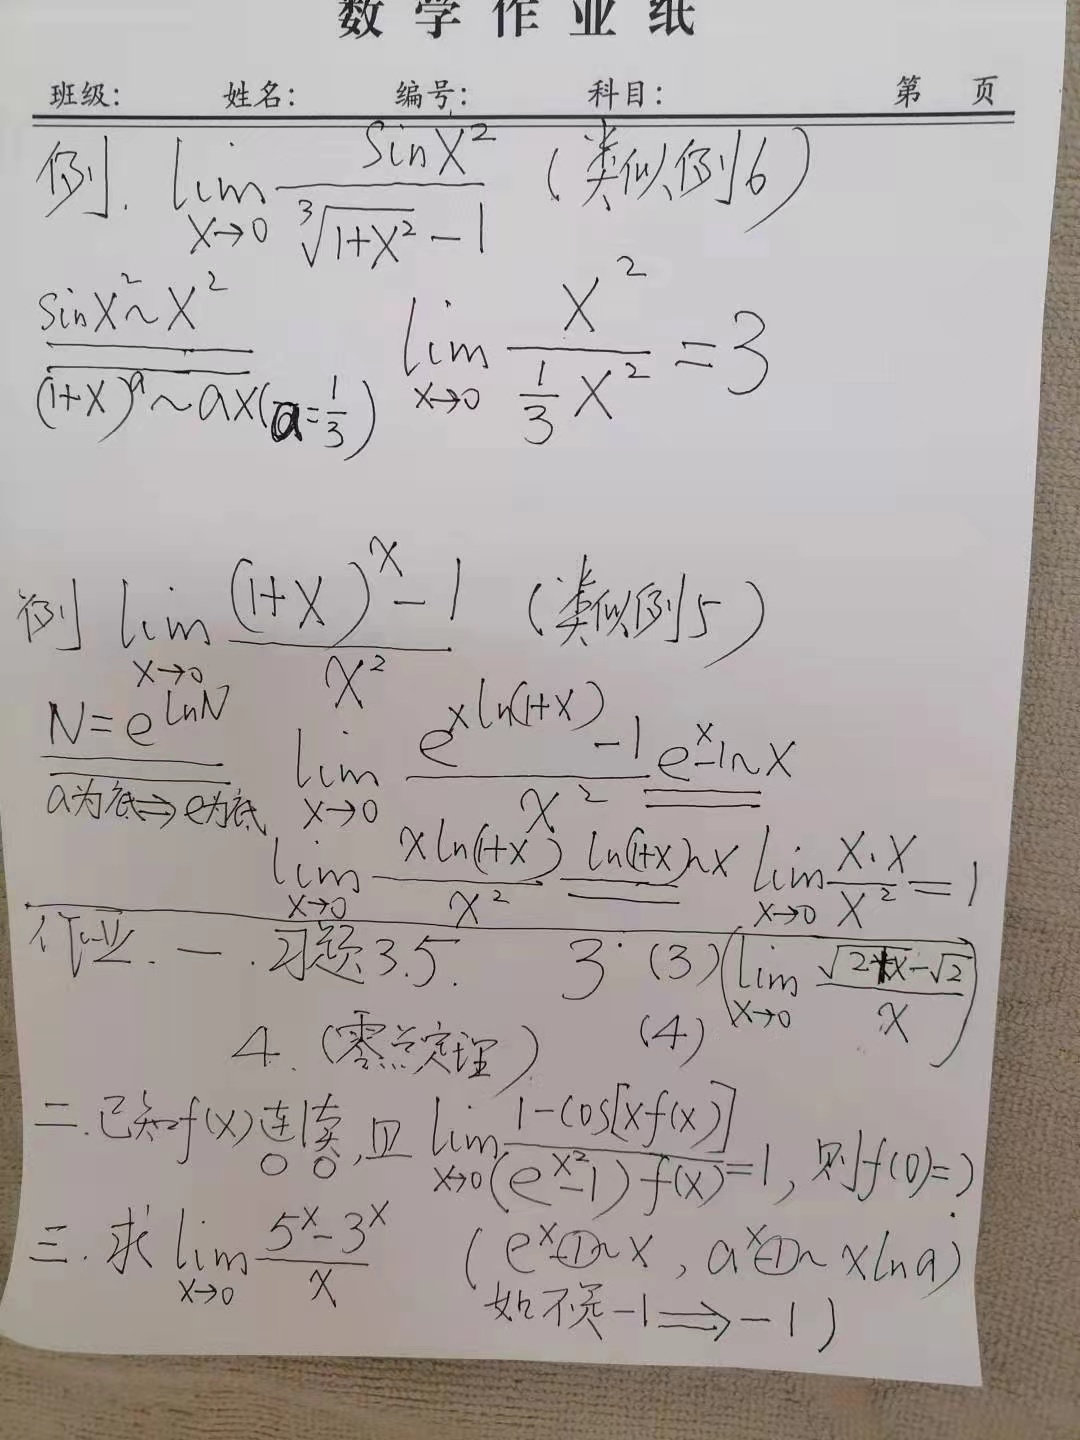 数学作业纸
班级: 姓名: 编号: 科目: 第 页
例. lim x→0 sinx² / (∛(1+x²) - 1) (类似例6)
sinx²~x² lim x→0 x² / (1/3 x²) = 3
(1+x)^a ~ ax (a=1/3)
例 lim x→0 ((1+x)^x - 1) / x² (类似例5)
N=e^lnN lim x→0 (e^(xln(1+x)) - 1) / x² e^x-1~x
a为底⇒e为底
lim x→0 xln(1+x) / x² ln(1+x)~x lim x→0 x·x / x² = 1
作业. 一. 习题3.5. 3. (3) (lim x→0 (√(2+x) - √2) / x)
4. (零点定理) (4)
二. 已知f(x)连续, 且 lim x→0 (1-cos[xf(x)]) / ((e^(x²)-1)f(x)) = 1, 则f(0)=?
三. 求 lim x→0 (5^x - 3^x) / x (e^x-1~x, a^x-1~xlna)
如不是-1⇒-1)